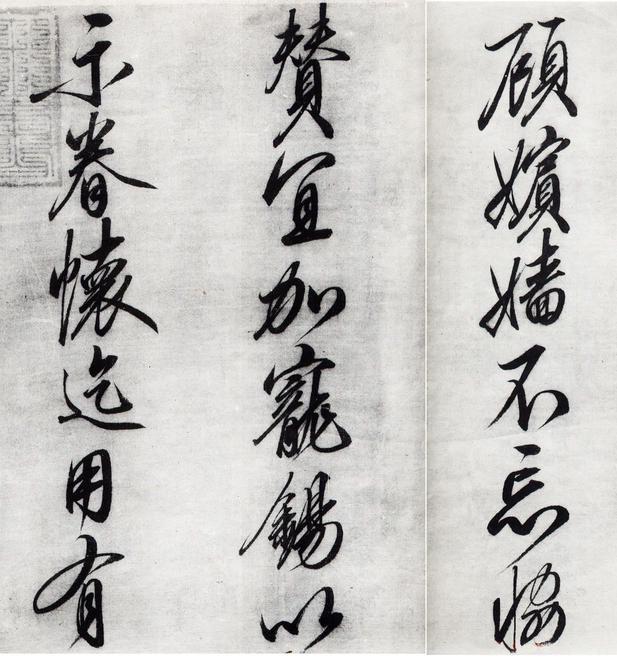 顧嬪嬙不忘恊
贊宜加寵錫以
示眷懷迄用有